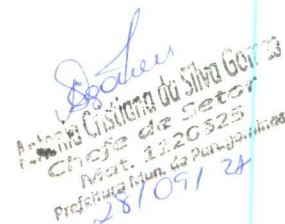 Antonia Cristiana da Silva Gomes
Chefe de Setor
Mat. 1120525
Prefeitura Mun. de Paragominas
28/09/21